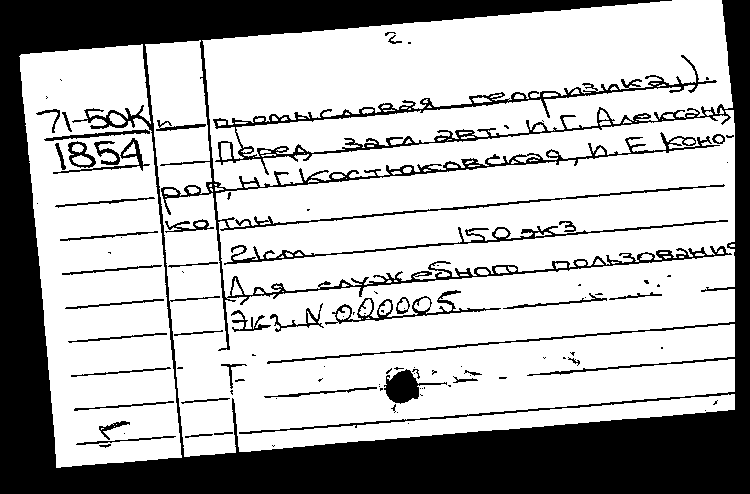 2.
71-50К
1854
и промысловая геофизика).
Перед загл. авт.: П.Г. Александ-
ров, Н.Г. Костюковская, П. Е Коно-
котин.
21см. 150 экз.
Для служебного пользования
Экз. N 000005